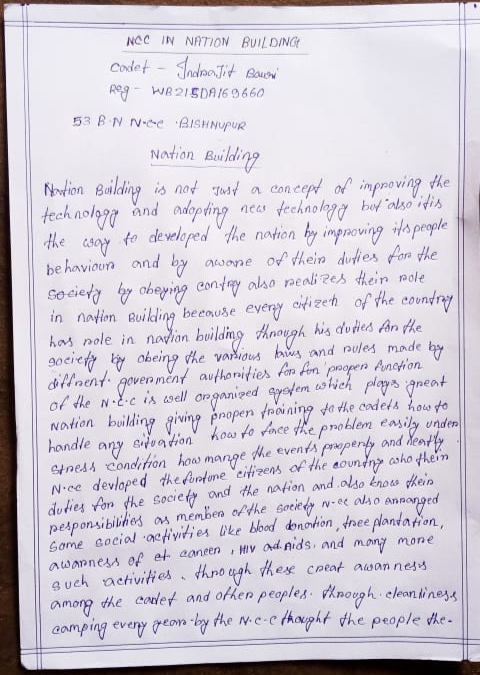 NCC IN NATION BUILDING
Cadet - IndraJit Bauri
Reg - WB21SDA169660
53 B.N N.c.c BISHNUPUR
Nation Building
Nation Building is not Just a concept of improving the
technology and adopting new technology but also itis
the way to developed the nation by improving its people
behaviour and by aware of their duties for the
society by obeying contry also realizes their role
in nation Building because every citizen of the country
has role in nation building through his duties for the
society by obeing the various laws and rules made by
diffrent goverment authorities for fun proper function
of the N.C.C is well organized system which plays great
Nation building giving proper training to the cadets how to
handle any situation how to face the problem easily under
stress condition how mange the events properly and neatly
N.cc devloped the furture citizens of the country who their
duties for the society and the nation and also know their
responsibilities as member of the society N-cc also arranged
some social activities like blood donation, tree plandation,
awarness of at cancer, HIV ad Aids. and many more
such activities. through these creat awarness
among the cadet and other peoples. through cleanliness
camping every year by the N.C.C thought the people the-